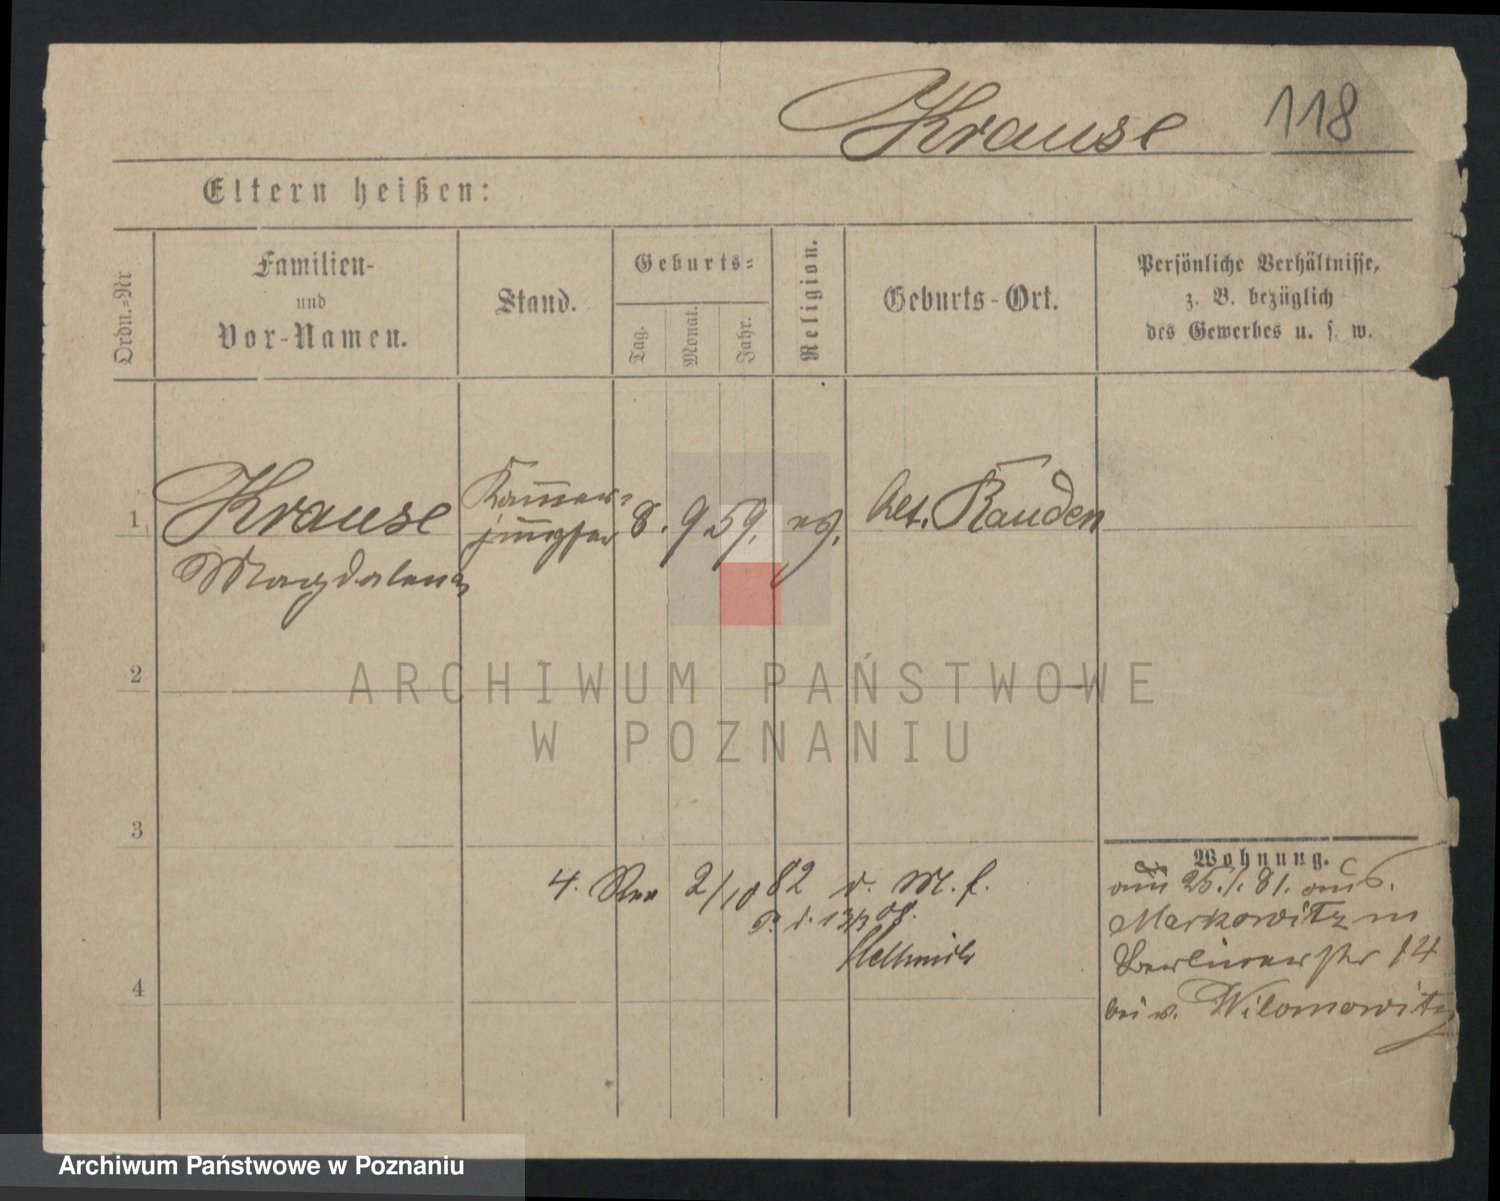 Krause 118
Eltern heißen:
Ordn.-Nr
Familien-
und
Vor-Namen.
Stand.
Geburts-
Tag.
Monat.
Jahr.
Religion.
Geburts-Ort.
Persönliche Verhältnisse,
z. B. bezüglich
des Gewerbes u. s. w.
1 Krause Kammer- 8. 9. 59. ev. Alt. Rauden
Magdalena jungfer
2
ARCHIWUM PAŃSTWOWE
W POZNANIU
3
Wohnung.
4. 2/10 82 v. M. f.
am 25./. 81. aus
Markowitz in
Berlinerstr 14
bei v. Wilomowitz
4
Archiwum Państwowe w Poznaniu